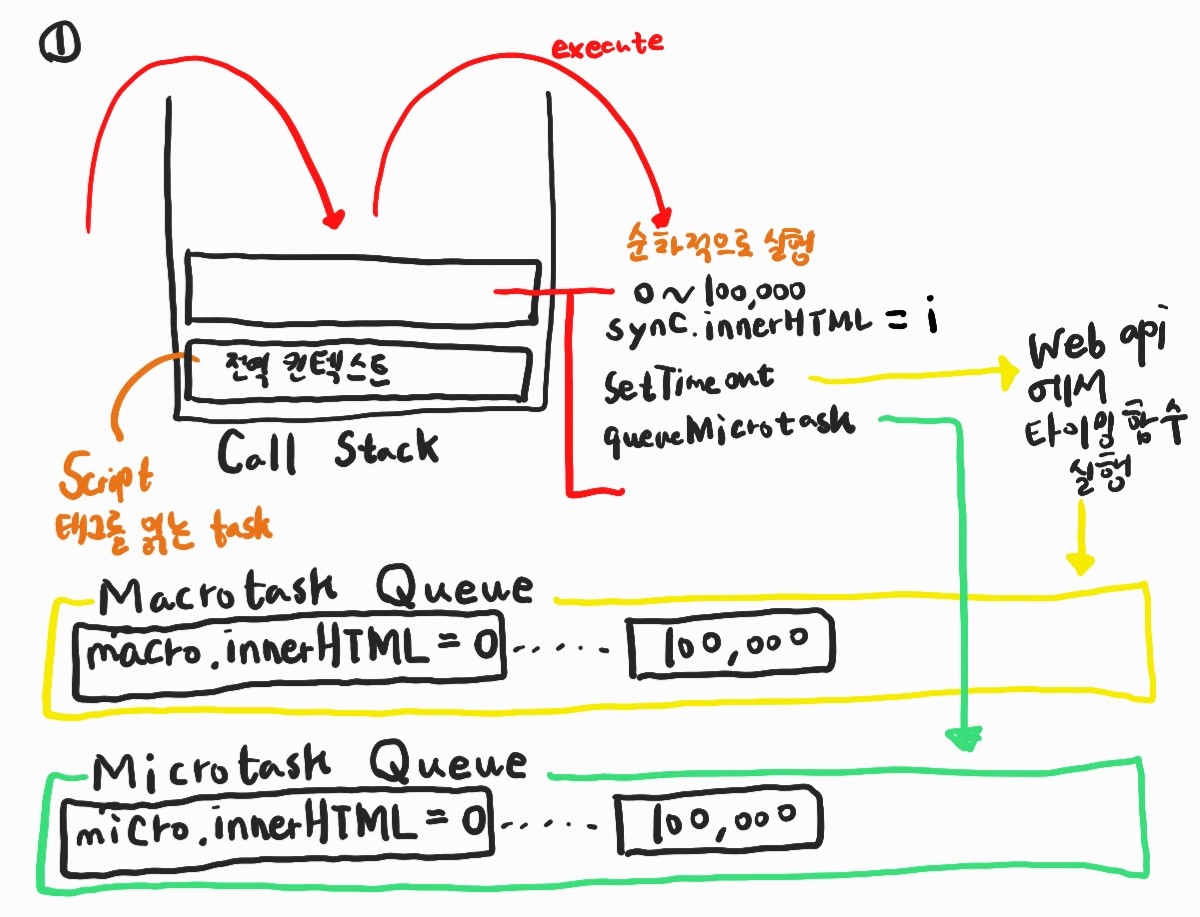 ①
execute
순차적으로 실행
0 ~ 100,000
sync.innerHTML = i
setTimeout
queueMicrotask
Web api
에서
타이밍 함수
실행
전역 컨텍스트
Call Stack
Script
태그를 읽는 task
Macrotask Queue
macro.innerHTML = 0 ...... 100,000
Microtask Queue
micro.innerHTML = 0 ...... 100,000